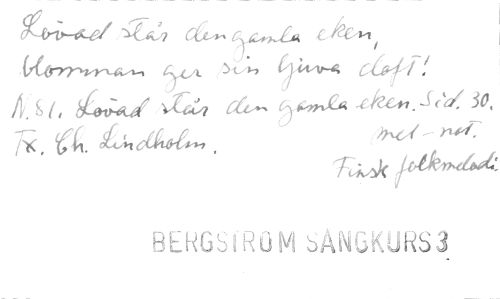 Lövad står den gamla eken,
blomman ger sin ljuva doft!
N.81. Lövad står den gamla eken. Sid. 30.
mel-not.
Tx. Ch. Lindholm.
Finsk folkmelodi.
BERGSTRÖM SÅNGKURS 3